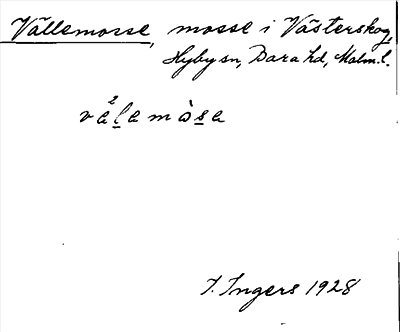 Vällemosse, mosse i Västerskog,
Hyby sn, Bara hd, Malm. l.
vä²lemòse
I. Ingers 1928